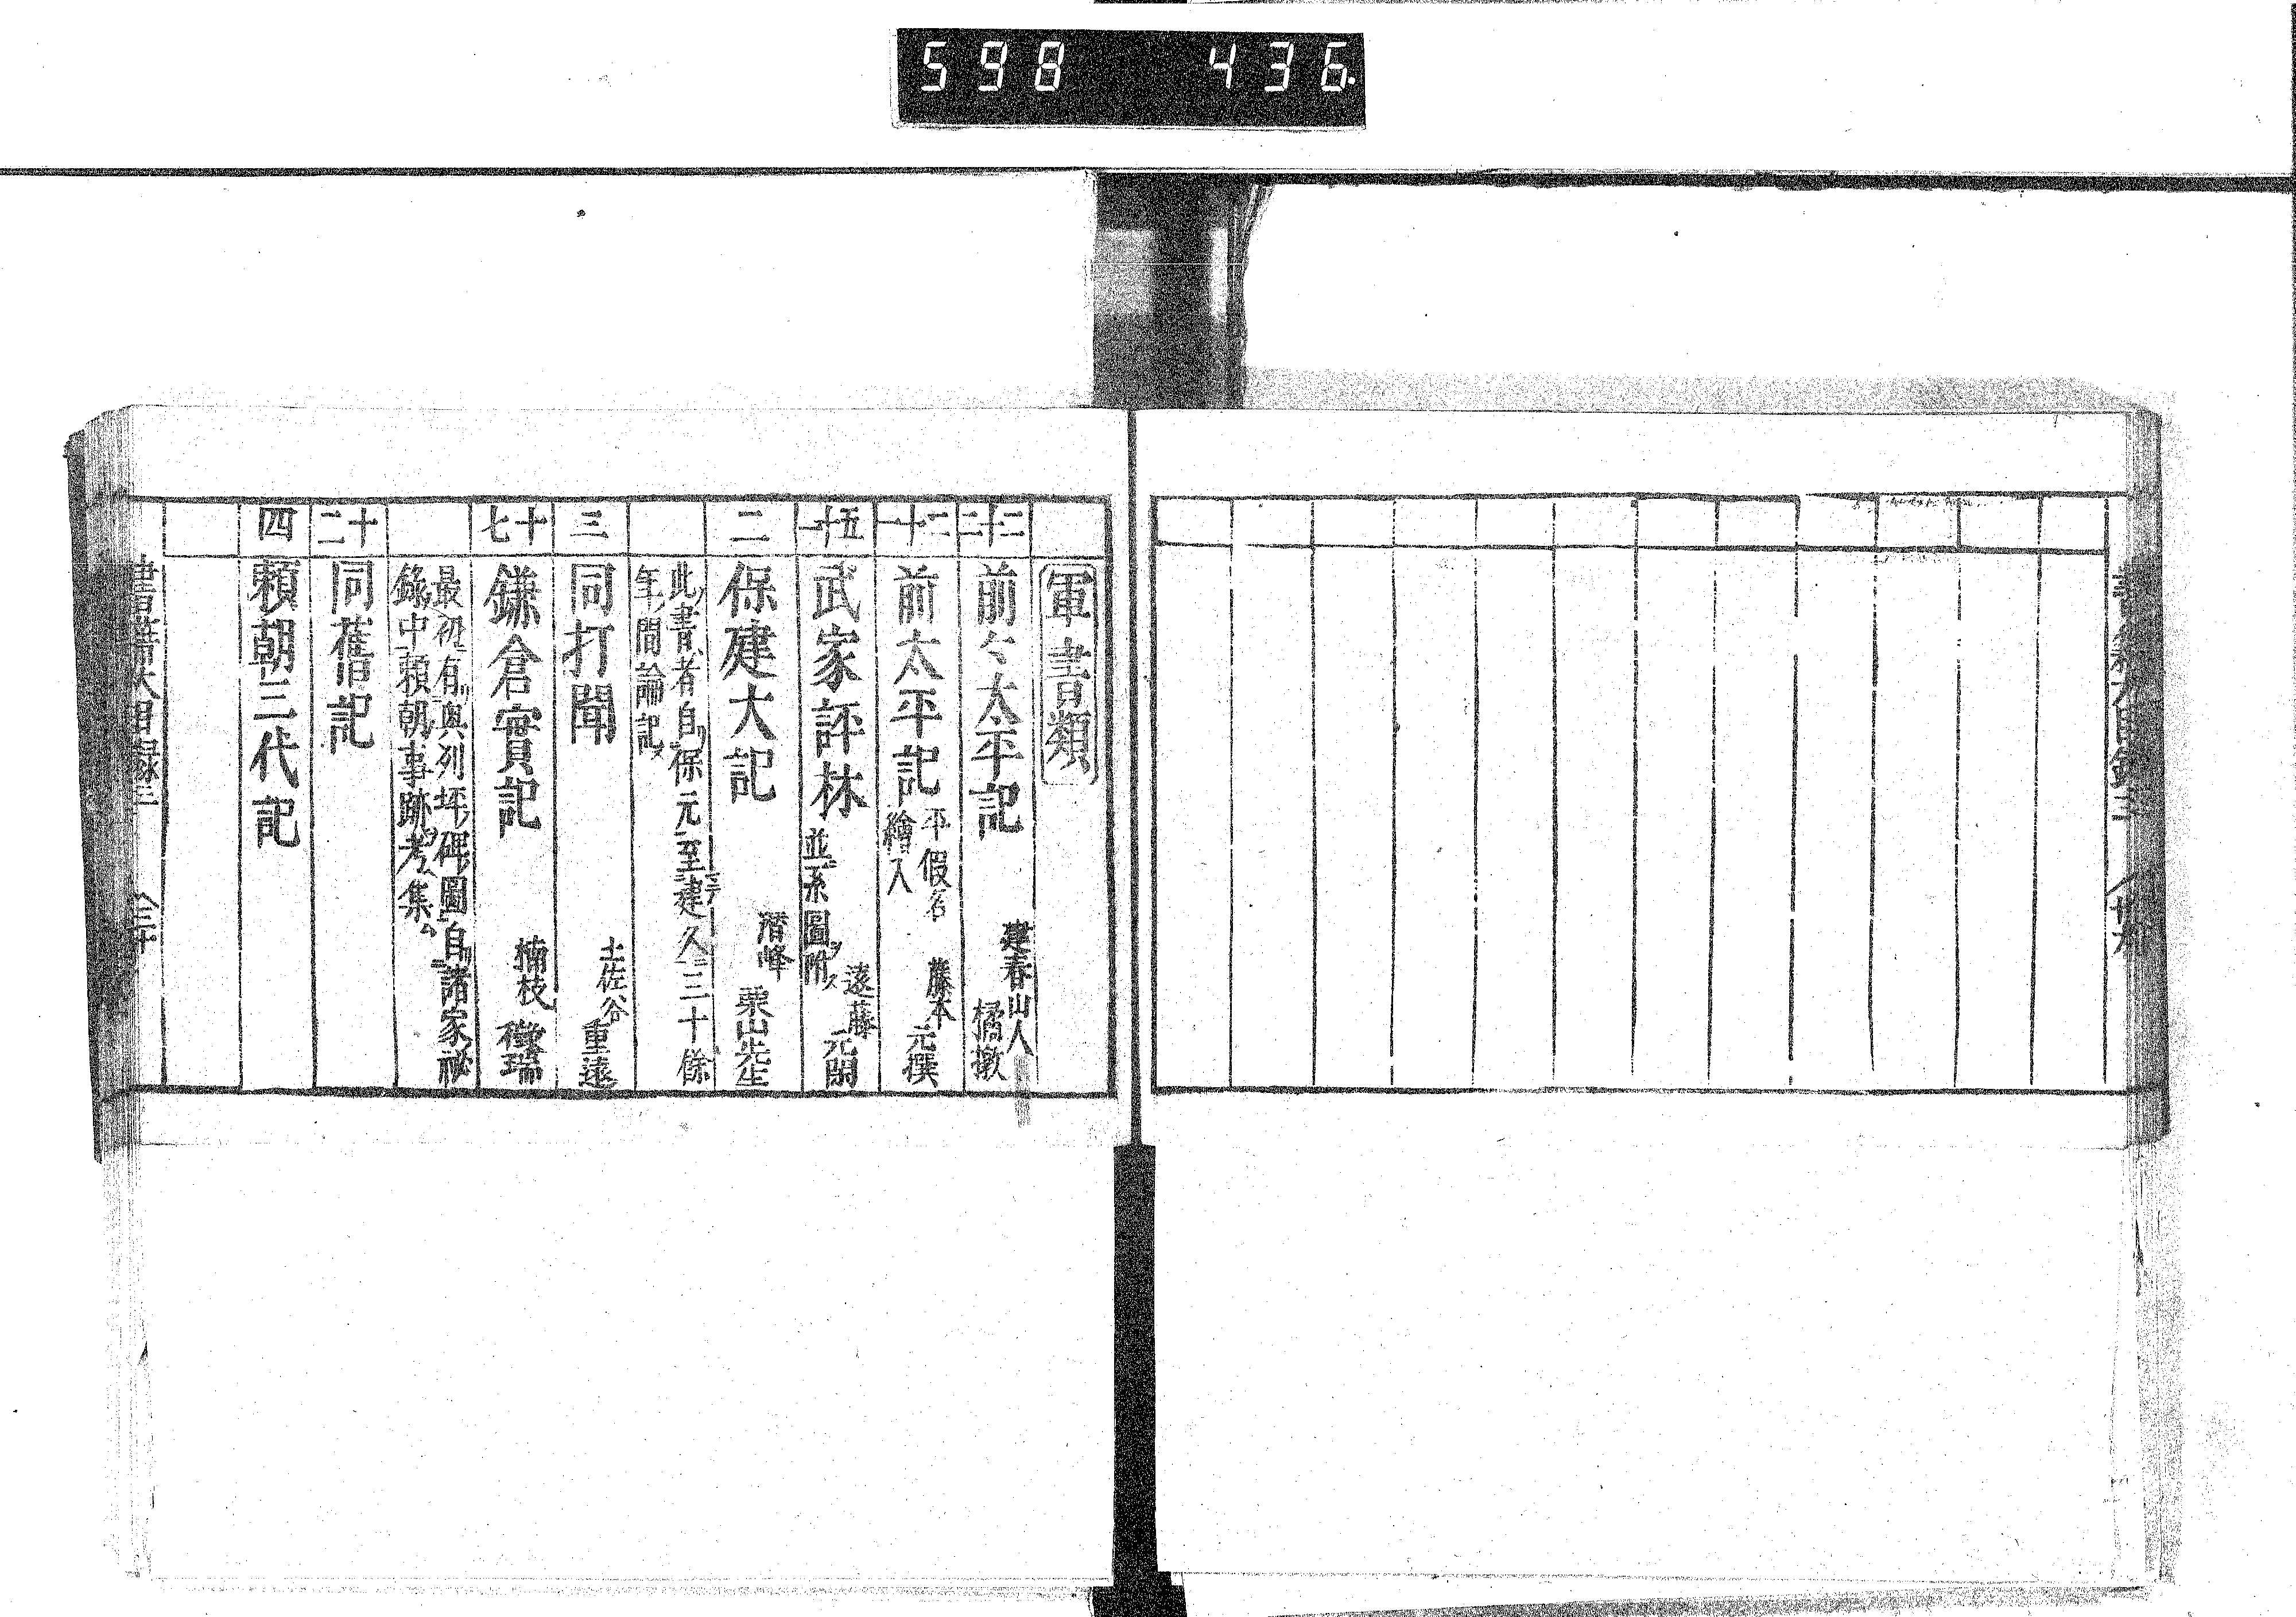 598 436
軍書類
二十二 前々太平記 建春山人 橘墩
二十一 前太平記 平假名 繪入 藤本 元撰
五十一 武家評林 並系圖附 遠藤 元閑
二 保建大記 潜峰 栗山先生
此書者自保元至建久三十餘
年間論記
三 同打聞 土佐谷 重遠
十七 鎌倉實記
最初有奥列坪碑圖自諸家祕
錄中頼朝事跡考集
十二 同舊記
四 頼朝三代記
書籍大目録三 三十